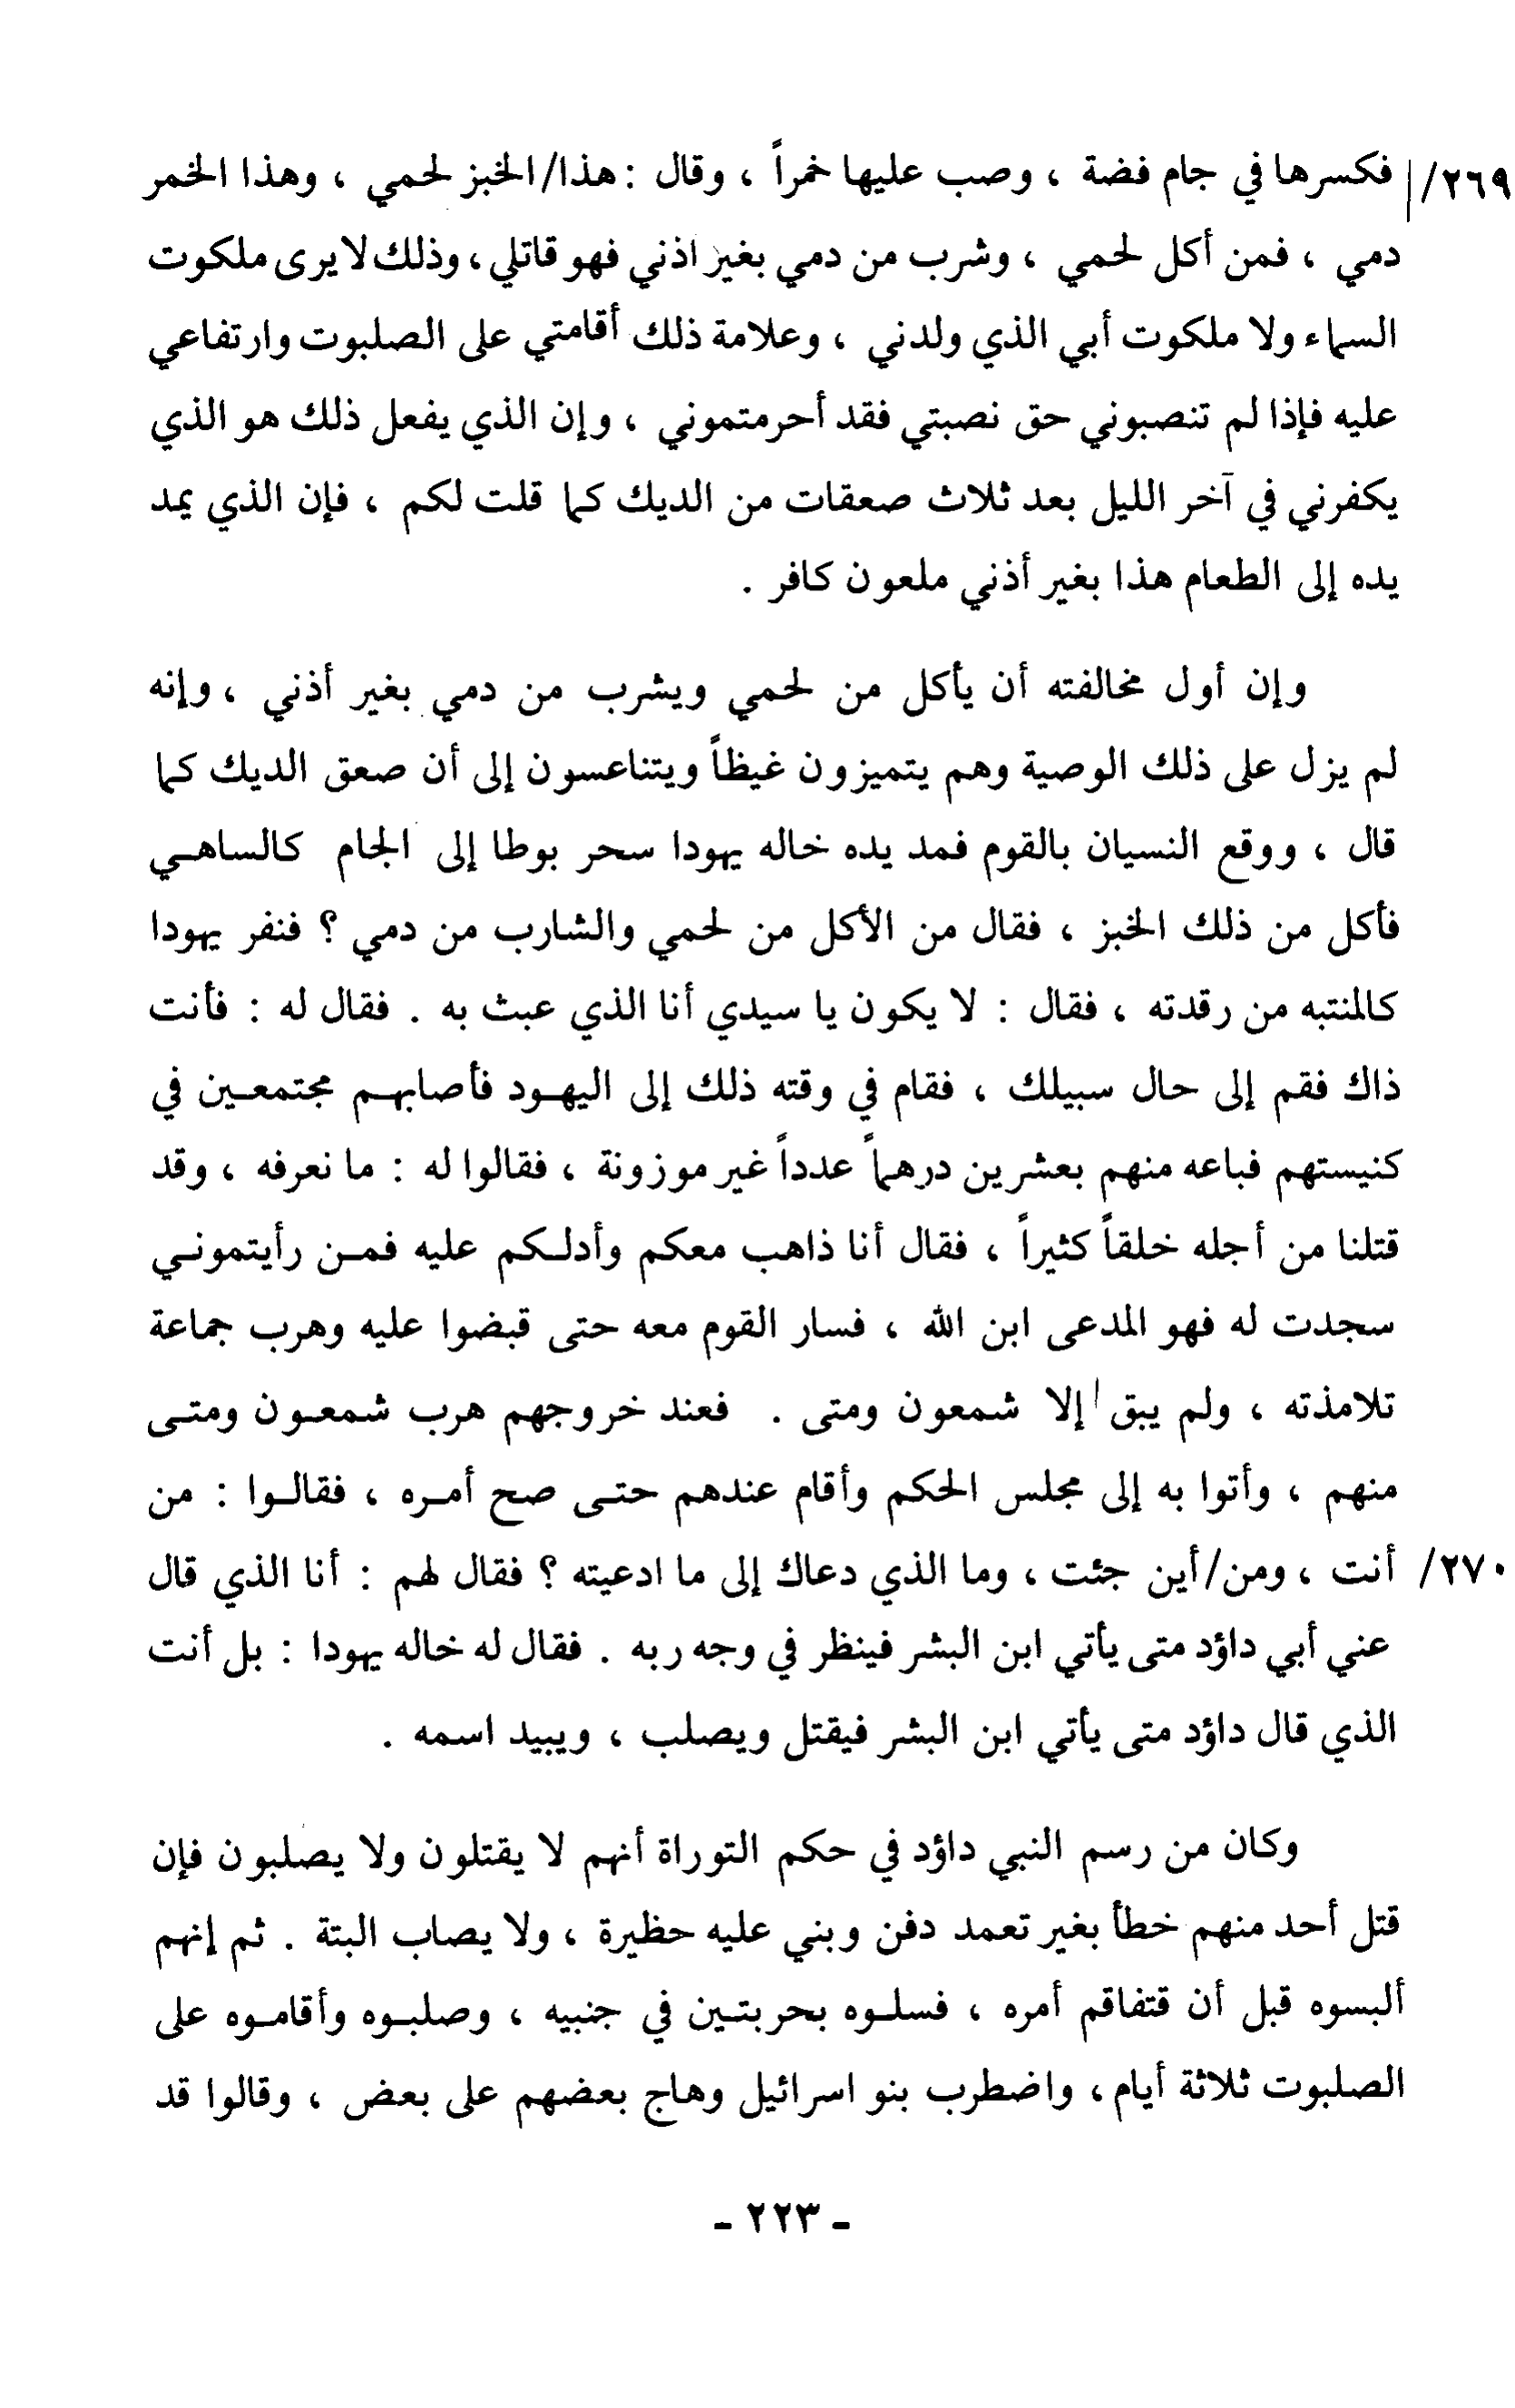 ٢٦٩/ فكسرها في جام فضة ، وصب عليها خمراً ، وقال : هذا/الخبز لحمي ، وهذا الخمر
دمي ، فمن أكل لحمي ، وشرب من دمي بغير اذني فهو قاتلي ، وذلك لا يرى ملكوت
السماء ولا ملكوت أبي الذي ولدني ، وعلامة ذلك أقامتي على الصلبوت وارتفاعي
عليه فإذا لم تنصبوني حق نصبتي فقد أحرمتموني ، وإن الذي يفعل ذلك هو الذي
يكفرني في آخر الليل بعد ثلاث صعقات من الديك كما قلت لكم ، فإن الذي يمد
يده إلى الطعام هذا بغير أذني ملعون كافر .
وإن أول مخالفته أن يأكل من لحمي ويشرب من دمي بغير أذني ، وإنه
لم يزل على ذلك الوصية وهم يتميزون غيظاً ويتناعسون إلى أن صعق الديك كما
قال ، ووقع النسيان بالقوم فمد يده خاله يهودا سحر بوطا إلى الجام كالساهي
فأكل من ذلك الخبز ، فقال من الأكل من لحمي والشارب من دمي ؟ فنفر يهودا
كالمنتبه من رقدته ، فقال : لا يكون يا سيدي أنا الذي عبث به . فقال له : فأنت
ذاك فقم إلى حال سبيلك ، فقام في وقته ذلك إلى اليهود فأصابهم مجتمعين في
كنيستهم فباعه منهم بعشرين درهماً عدداً غير موزونة ، فقالوا له : ما نعرفه ، وقد
قتلنا من أجله خلقاً كثيراً ، فقال أنا ذاهب معكم وأدلكم عليه فمن رأيتموني
سجدت له فهو المدعى ابن الله ، فسار القوم معه حتى قبضوا عليه وهرب جماعة
تلامذته ، ولم يبق إلا شمعون ومتى . فعند خروجهم هرب شمعون ومتى
منهم ، وأتوا به إلى مجلس الحكم وأقام عندهم حتى صح أمره ، فقالوا : من
٢٧٠/ أنت ، ومن/أين جئت ، وما الذي دعاك إلى ما ادعيته ؟ فقال لهم : أنا الذي قال
عني أبي داؤد متى يأتي ابن البشر فينظر في وجه ربه . فقال له خاله يهودا : بل أنت
الذي قال داؤد متى يأتي ابن البشر فيقتل ويصلب ، ويبيد اسمه .
وكان من رسم النبي داؤد في حكم التوراة أنهم لا يقتلون ولا يصلبون فإن
قتل أحد منهم خطأ بغير تعمد دفن وبني عليه حظيرة ، ولا يصاب البتة . ثم إنهم
ألبسوه قبل أن قتفاقم أمره ، فسلوه بحربتين في جنبيه ، وصلبوه وأقاموه على
الصلبوت ثلاثة أيام ، واضطرب بنو اسرائيل وهاج بعضهم على بعض ، وقالوا قد
- ٢٢٣ -